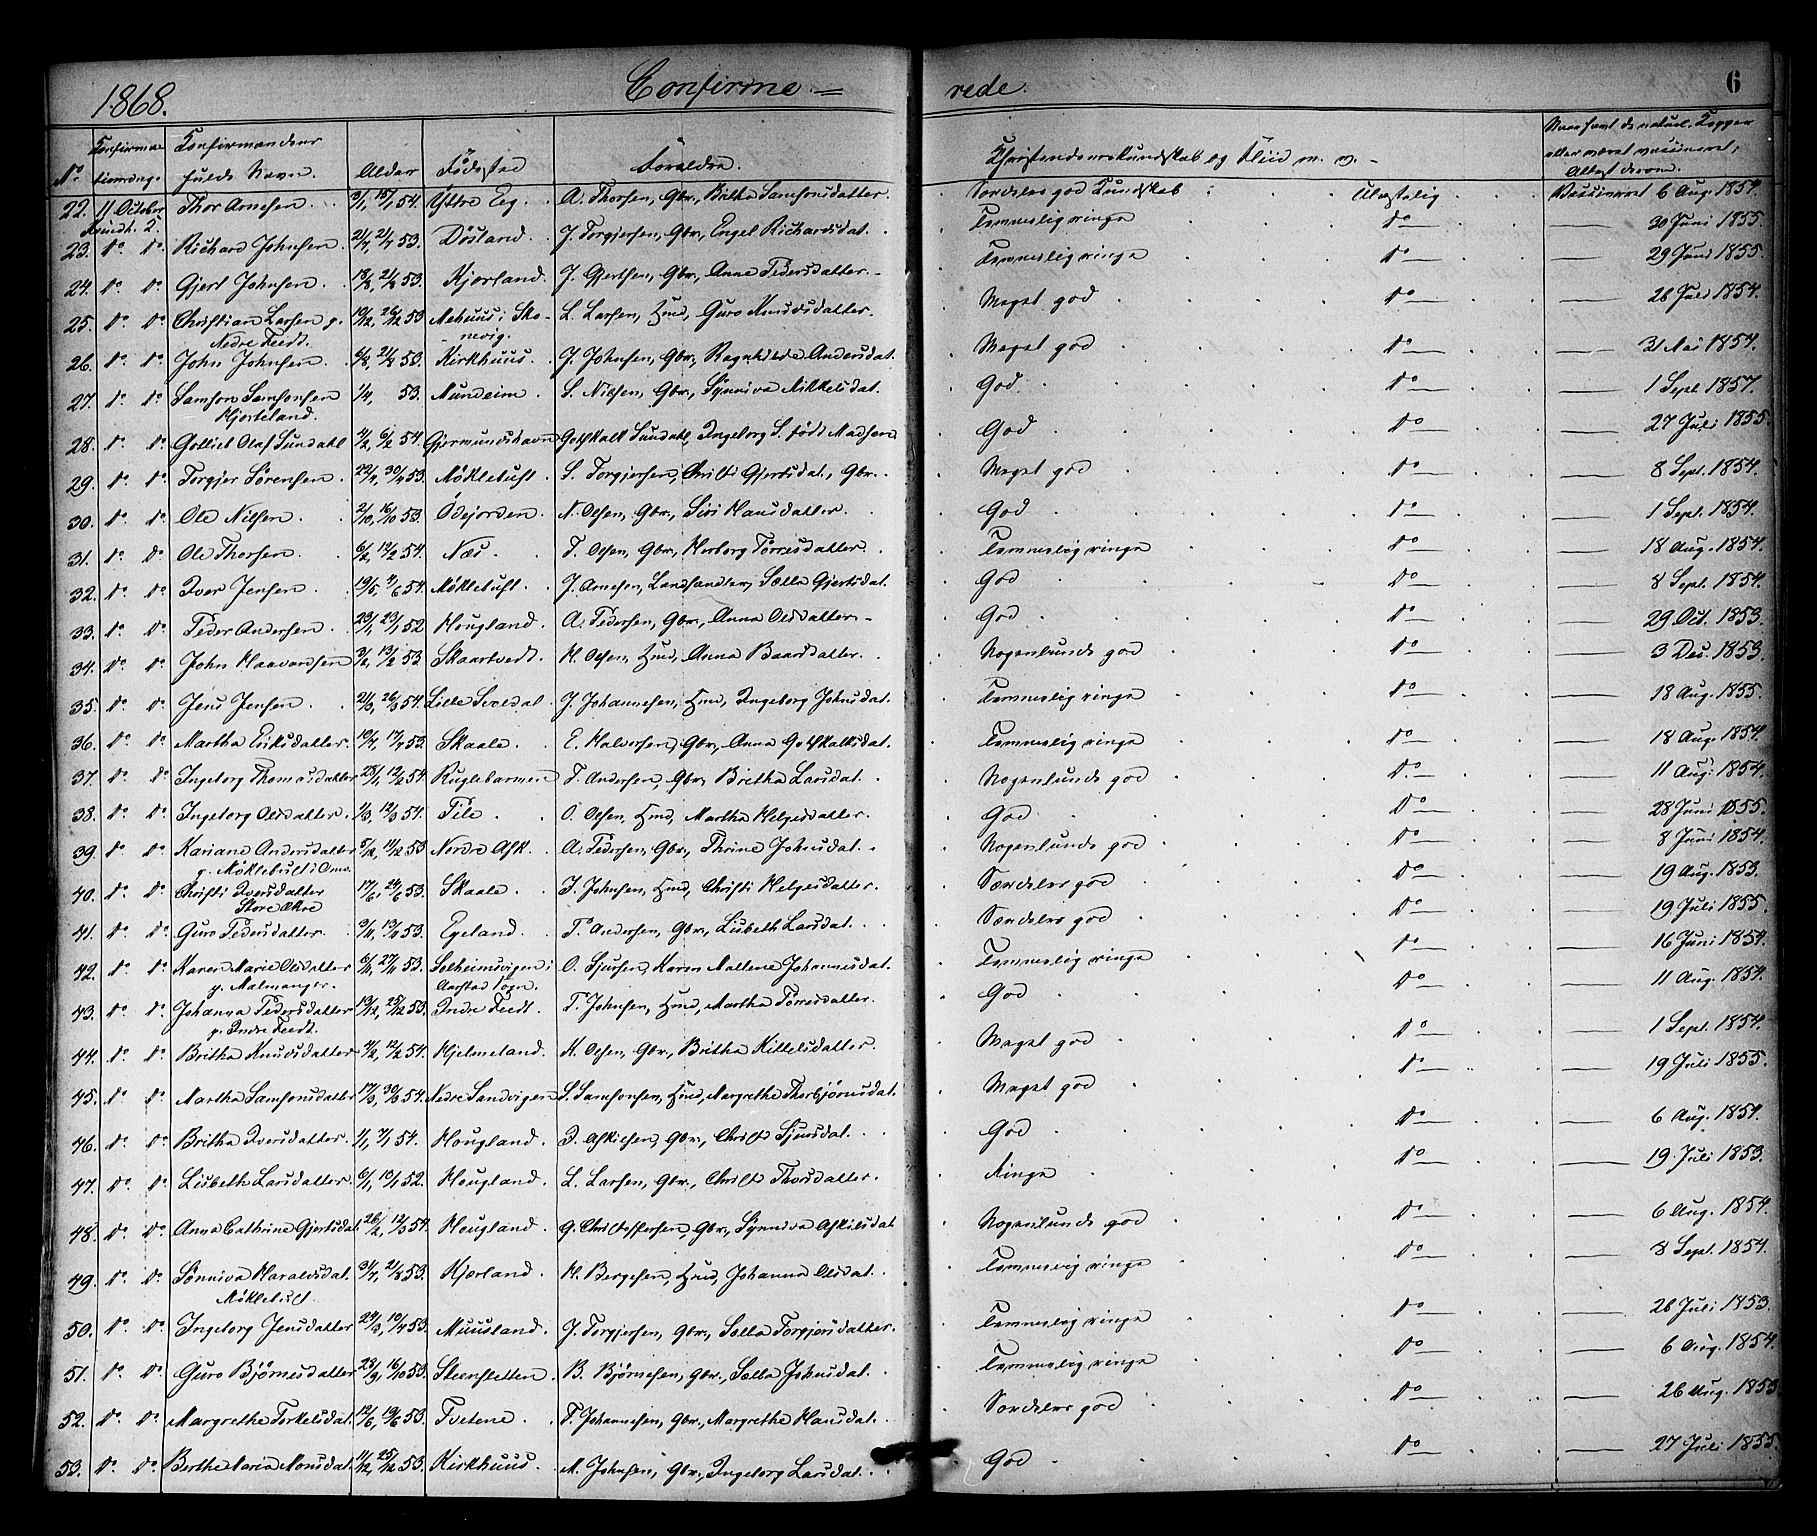 1868. Confirme- rede. 6
No Confirma- tionsdag. Confirmandens fulde Navn. Alder Fødested Forældre. Christendomskundskab og Fliid m. v. - Naar havt de naturl. Kopper eller været vaccineret; Attest derom.
22. 11 October Thor Arnesen. 3/1, 15/1 54. Ÿttre Eeg. A. Thorsen, Gbr, Britha Samsonsdatter. Særdeles god Kundskab Ulastelig Vaccineret 6 Aug. 1854.
Qvindh. K.
23. do do Richard Johnsen. 21/7 53. Døsland. J. Torgjersen, Gbr, Engel Richardsdat. Temmelig ringe do 30 Juni 1855.
24. do do Gjert Johnsen. 18/8, 21/8 53. Kjerland. J. Gjertsen, Gbr, Anne Pedersdatter. Temmelig ringe do 29 Juni 1855.
25. do do Christian Larsen p. 19/12, 26/12 53 i Sko- L. Larsen, Hmd, Guro Knudsdatter. Meget god do 26 Juli 1854.
Nedre Feedt. nevig.
26. do do John Johnsen. 6/8, 21/8 53. Kirkhuus. J. Johnsen, Gbr, Ragnhilde Andersdat. Meget god do 31 Mai 1854.
27. do do Samson Samsonsen 1/4, 53. Mundeim. S. Nilsen, Gbr, Synniva Mikkelsdat. God do 1 Sept. 1857.
Hjorteland.
28. do do Gotlieb Olaf Sundahl 4/2, 6/2 54. Gjermundshavn Gotskalk Sundahl, Ingeborg S. født Madsen God do 27 Juli 1855.
29. do do Torgjer Sørensen. 22/4, 30/4 53. Møklebust. S. Torgjersen, Christi Gjertsdat., Gbr. Meget god do 8 Sept. 1854.
30. do do Ole Nilsen. 2/10, 16/10 53. Ødejorden. N. Olsen, Gbr, Siri Hansdatter. God do 1 Sept. 1854.
31. do do Ole Thorsen. 6/2, 12/2 54. Næs. T. Olsen, Gbr, Herborg Tørresdatter. Temmelig ringe do 18 Aug. 1854.
32. do do Iver Jensen. 19/5, 4/6 54. Møklebust. J. Arnesen, Landhandler, Sella Gjertsdat. God do 8 Sept. 1854.
33. do do Peder Andersen. 23/1 52 Hougland. A. Pedersen, Gbr, Anna Olsdatter. God do 29 Oct. 1853.
34. do do John Haavardsen 3/2, 13/2 53 Skaartvedt. H. Olsen, Hmd, Anna Baardsdatter. Nogenlunde god do 3 Dec. 1853.
35. do do Jens Jensen. 21/3, 26/3 54. Lille J. Johannesen, Hmd, Ingeborg Johnsdat. Temmelig ringe do 18 Aug. 1855.
36. do do Martha Eriksdatter. 10/7, 17/7 53. Skaale. E. Halversen, Gbr, Anna Gotskalksdat. Temmelig ringe do 18 Aug. 1854.
37. do do Ingeborg Thomasdatter 28/1, 12/2 54. Ruglebarmen T. Andersen, Gbr, Britha Larsdat. Nogenlunde god do 11 Aug. 1854.
38. do do Ingeborg Olsdatter. 1/3, 12/3 54. Tile. O. Olsen, Hmd, Martha Helgesdatter. God do 28 Juni 1855.
39. do do Kariane Andersdatter 5/12, 11/12 53 Nordre Ask. A. Pedersen, Gbr, Thrine Johnsdat. Nogenlunde god do 8 Juni 1854.
p. Møklebust i Omv.
40. do do Christi Iversdatter 17/6, 24/6 53. Skaale. I. Johnsen, Hmd, Christi Helgesdatter. Særdeles god do 19 Aug. 1853.
Store Økre
41. do do Guro Pedersdatter. Egeland. P. Andersen, Gbr, Lisbeth Larsdat. Særdeles god do 19 Juli 1855.
42. do do Karen Marie Olsdatter 6/11, 27/11 53. Solheimsvigen i O. Sjursen, Karen Malene Johannesdat. Temmelig ringe do 16 Juni 1854.
p. Malmanger. Aarstad Sogn.
43. do do Johanna Pedersdatter 13/12, 25/12 53. Indre Feedt. P. Johnsen, Hmd, Martha Tørresdatter. God do 11 Aug. 1854.
p. Indre Feedt.
44. do do Britha Knudsdatter 2/2, 12/2 54. Hjelmeland. K. Olsen, Gbr, Britha Kittelsdatter. Meget god do 1 Sept. 1854.
45. do do Martha Samsonsdatter 17/3, 30/3 54. Nedre Sandvigen S. Samsonsen, Hmd, Margrethe Thorbjørnsdat. Meget god do 19 Juli 1855.
46. do do Britha Iversdatter. 1/1, 7/1 54. Hougland. I. Askielsen, Gbr, Christi Sjursdat. God do 6 Aug. 1854.
47. do do Lisbeth Larsdatter. 6/1, 18/1 52. Hougland. L. Larsen, Gbr, Christi Thorsdatter. Ringe do 19 Juli 1853.
48. do do Anna Cathrine Gjertsdat. 26/2, 12/3 54. Hougland. G. Christoffersen, Gbr, Synniva Askilsdat Nogenlunde god do 6 Aug. 1854.
49. do do Sønniva Haraldsdat. 31/7, 21/8 53. Kjerland. H. Bergesen, Hmd, Johanna Olsdat. Temmelig ringe do 8 Sept. 1854.
Møklebust.
50. do do Ingeborg Jensdatter 24/3, 10/4 53. Muusland. J. Torgjersen, Gbr, Sella Torgjersdatter. Temmelig ringe do 26 Juli 1853.
51. do do Guro Bjørnesdatter 23/9, 16/10 53. Steensletten. B. Bjørnesen, Gbr, Sella Johnsdat. Temmelig ringe do 6 Aug. 1854.
52. do do Margrethe Torkelsdat. 12/6, 19/6 53. Tvetene. T. Johannesen, Gbr, Margrethe Hansdat. Særdeles god do 26 Aug. 1853
53. do do Berthe Maria Monsdat. 11/12, 25/12 53. Kirkhuus. M. Johnsen, Gbr, Ingeborg Larsdat. God do 27 Juli 1855.